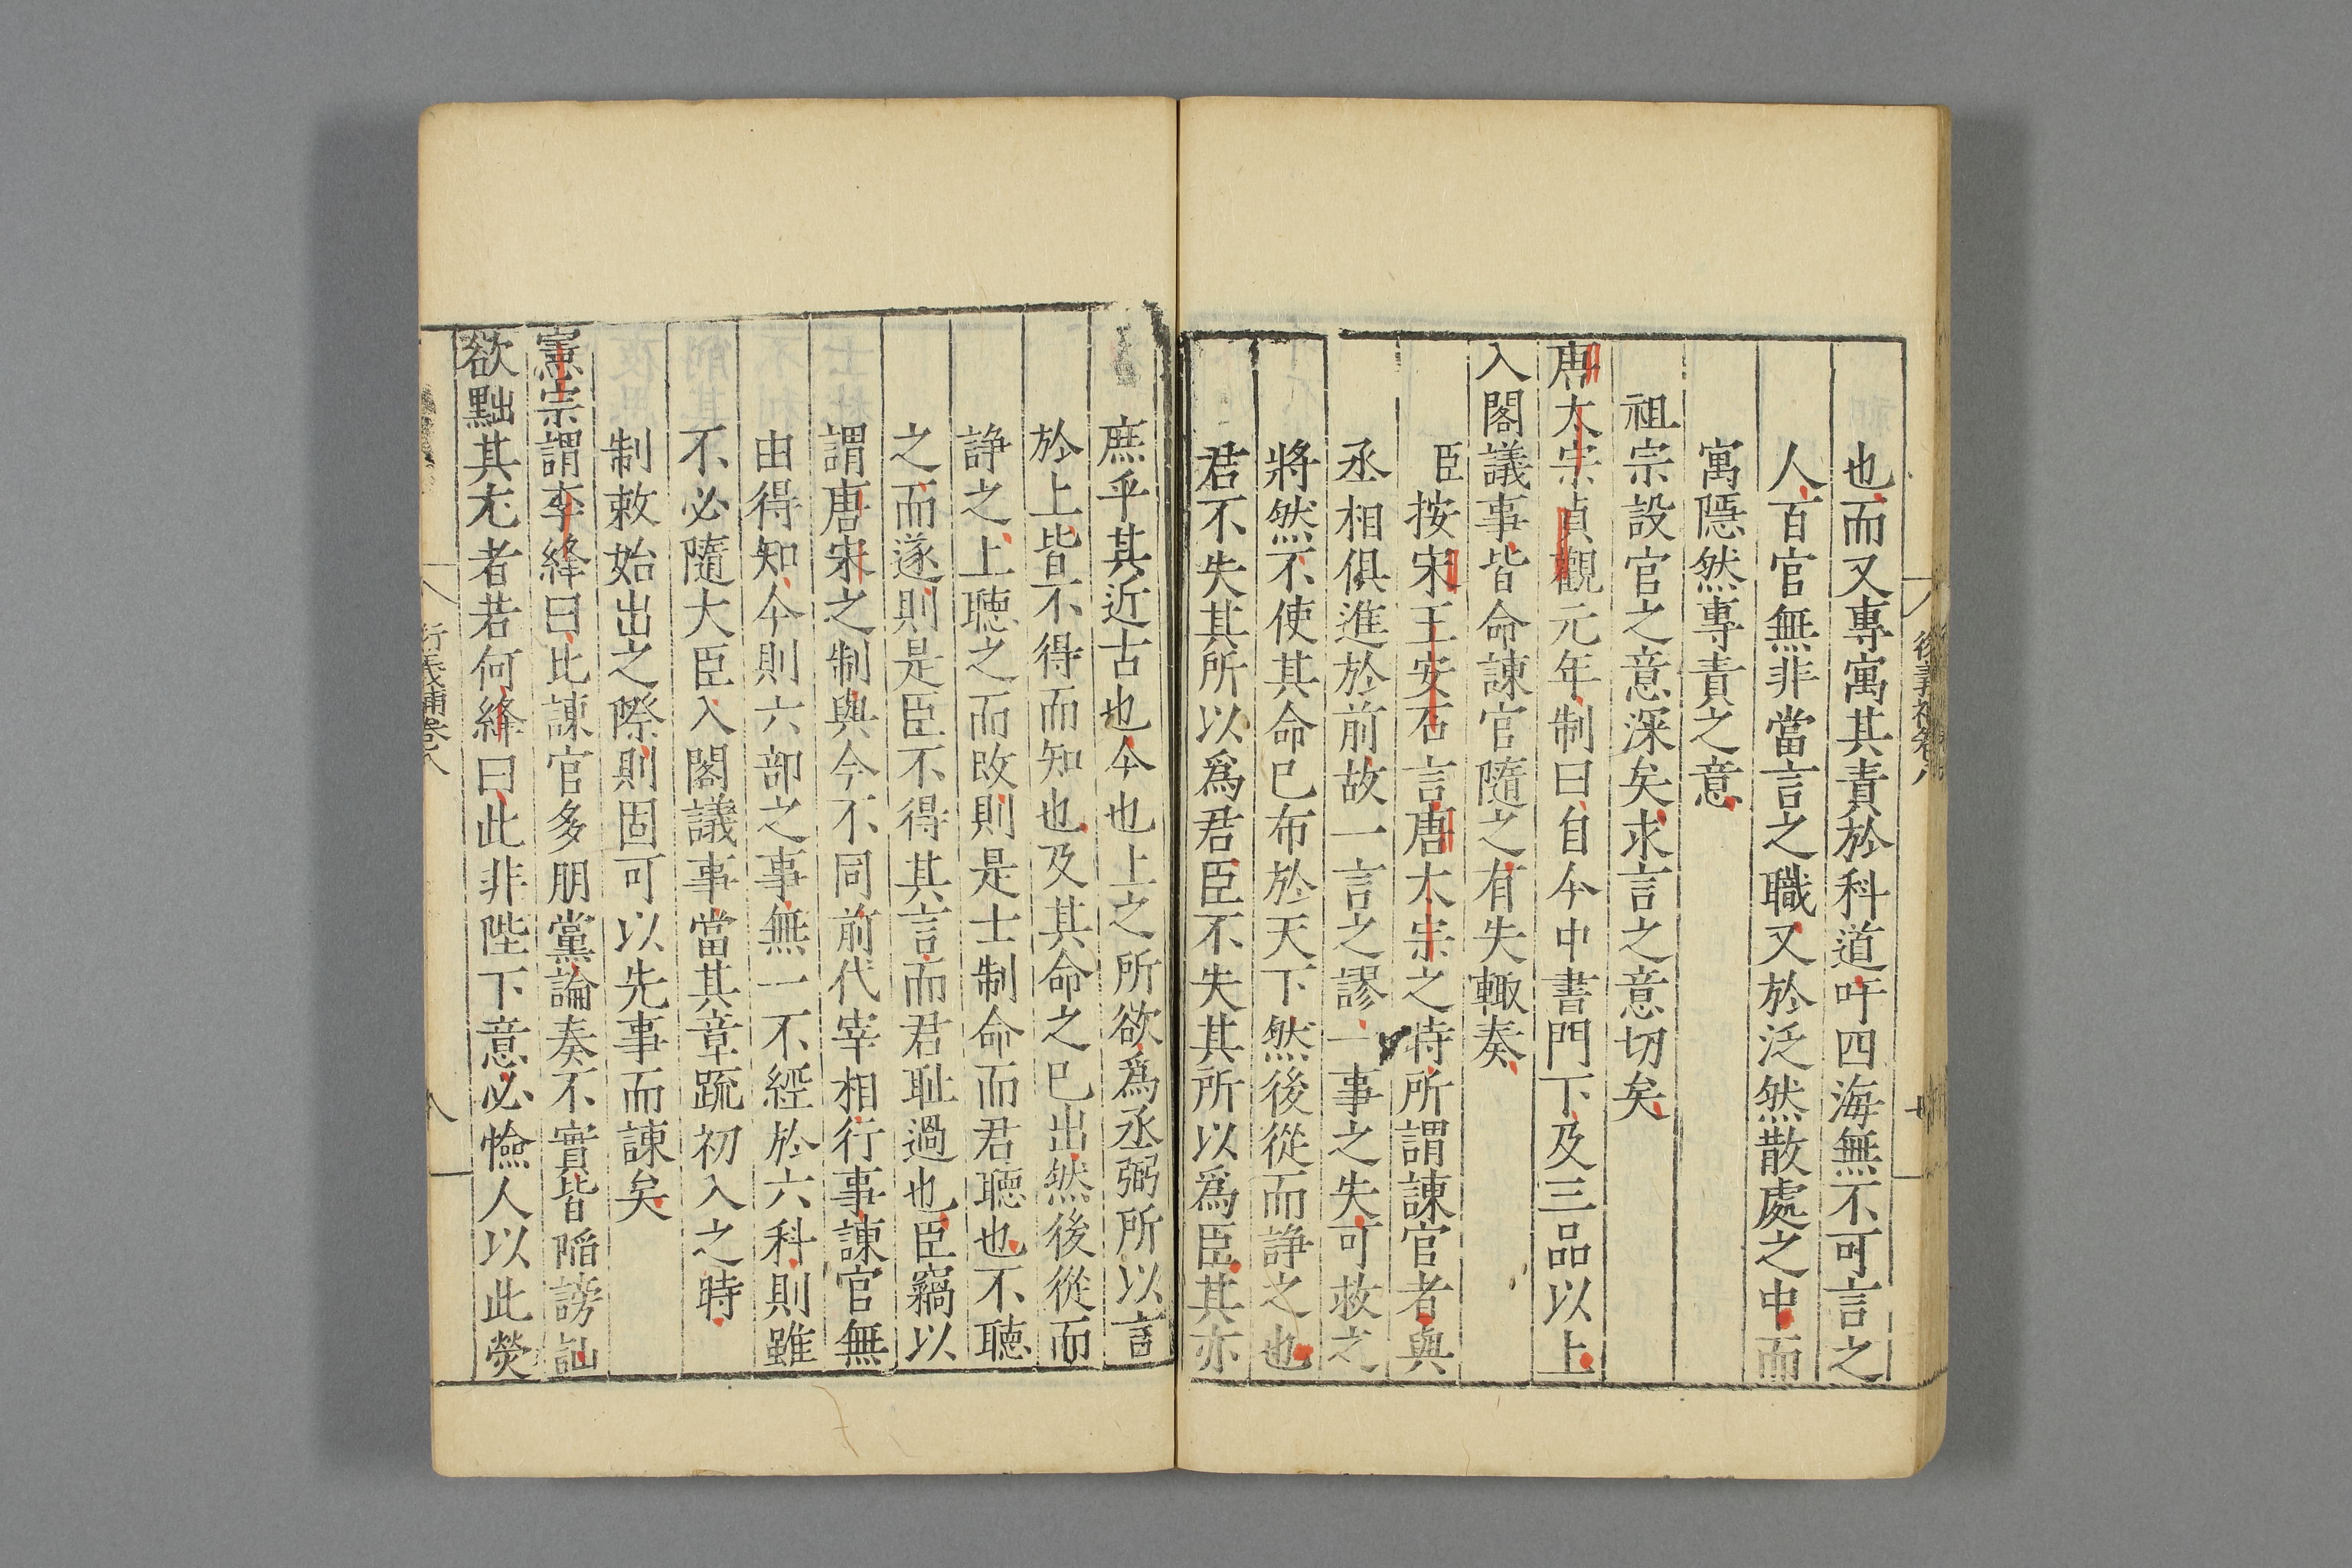 也而又專寓其責於科道吁四海無不可言之
人百官無非當言之職又於泛然散處之中而
寓隱然專責之意
祖宗設官之意深矣求言之意切矣
唐太宗貞觀元年制曰自今中書門下及三品以上
入閣議事皆命諫官隨之有失輙奏
臣按宋王安石言唐太宗之時所謂諫官者與
丞相俱進於前故一言之謬一事之失可救之
將然不使其命已布於天下然後從而諍之也
君不失其所以爲君臣不失其所以爲臣其亦
庶乎其近古也今也上之所欲爲丞弼所以言
於上皆不得而知也及其命之已出然後從而
諍之上聽之而改則是士制命而君聽也不聽
之而遂則是臣不得其言而君耻過也臣竊以
謂唐宋之制與今不同前代宰相行事諫官無
由得知今則六部之事無一不經於六科則雖
不必隨大臣入閣議事當其章疏初入之時
制敕始出之際則固可以先事而諫矣
憲宗謂李絳曰比諫官多朋黨論奏不實皆陷謗訕
欲黜其尤者若何絳曰此非陛下意必憸人以此熒
衍義補卷八